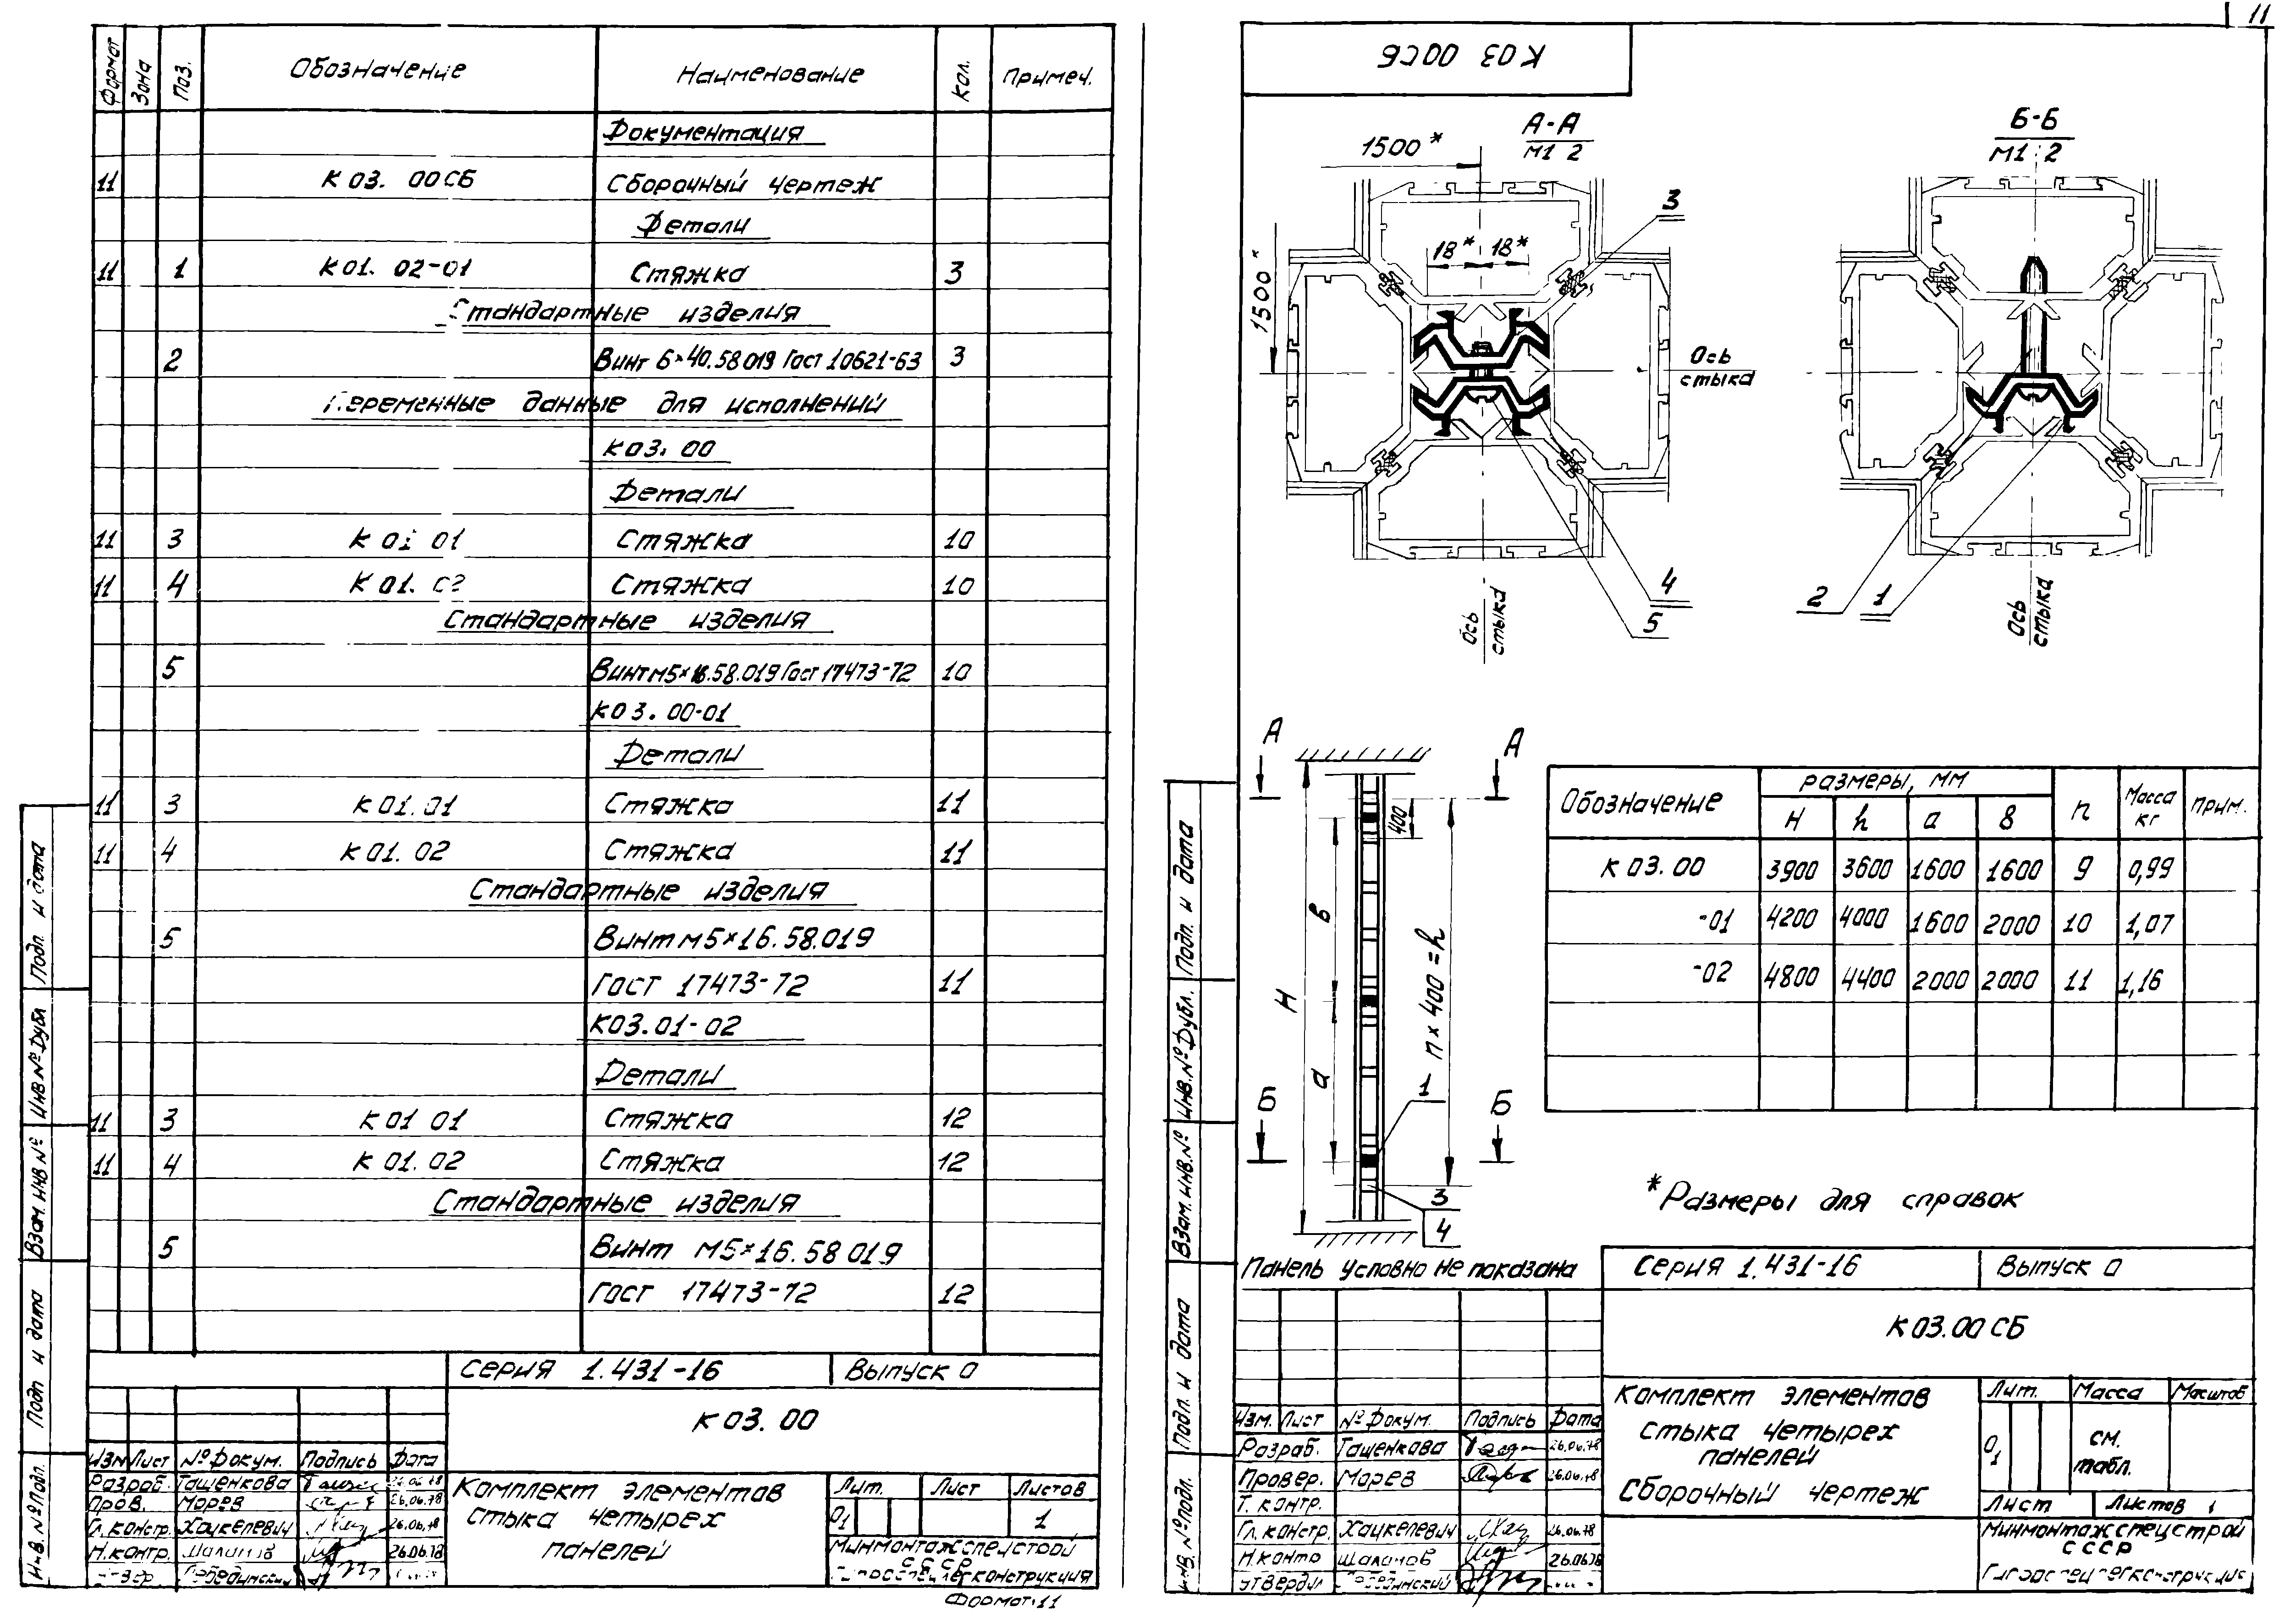 Формат Зона Поз. Обозначение Наименование Кол. Примеч.
Документация
11 К 03. 00СБ Сборочный чертеж
Детали
11 1 К 01. 02-01 Стяжка 3
Стандартные изделия
2 Винт 6×40.58.019 Гост 10621-63 3
Переменные данные для исполнений
К 03. 00
Детали
11 3 К 01 01 Стяжка 10
11 4 К 01. 02 Стяжка 10
Стандартные изделия
5 Винт М5×16.58.019 Гост 17473-72 10
К 03. 00-01
Детали
11 3 К 01. 01 Стяжка 11
11 4 К 01. 02 Стяжка 11
Стандартные изделия
5 Винт М5×16.58.019
Гост 17473-72 11
К03.01-02
Детали
11 3 К 01 01 Стяжка 12
11 4 К 01. 02 Стяжка 12
Стандартные изделия
5 Винт М5×16.58 019
Гост 17473-72 12
Серия 1.431-16 Выпуск 0
К 03. 00
Изм Лист № Докум. Подпись Дата
Разраб. Ташенкова 26.06.78
Пров. Морев 26.06.78
Гл. констр. Хацкелевич 26.06.78
Н.контр. Шаланов 26.06.78
Лебединский
Комплект элементов
стыка четырех
панелей
Лит. Лист Листов
01 1
Минмонтажспецстрой
СССР
Формат 11
Подп. и дата
Инв № дубл
Взам. инв №
Подп и дата
Инв. № подл.
11
К 03 00СБ
А-А
М1 2
Б-Б
М1:2
1500*
1500*
18* 18*
3
Ось
стыка
4
5
Ось
стыка
2 1
Ось
стыка
А А
400
в
Н
n × 400 = h
а
1
Б Б
3
4
Обозначение размеры, мм n Масса кг Прим.
Н h а в
К 03.00 3900 3600 1600 1600 9 0,99
-01 4200 4000 1600 2000 10 1,07
-02 4800 4400 2000 2000 11 1,16
* Размеры для справок
Панель условно не показана
Серия 1.431-16 Выпуск 0
К 03.00 СБ
Изм. Лист № Докум. Подпись Дата
Разраб. Ташенкова 26.06.78
Провер. Морев 26.06.78
Т. контр.
Гл. констр. Хацкелевич 26.06.78
Н.контр Шаланов 26.06.78
Утвердил Лебединский
Комплект элементов
стыка четырех
панелей
Сборочный чертеж
Лит. Масса Масштаб
01 см.
табл.
Лист Листов 1
Минмонтажспецстрой
СССР
Подп. и дата
Инв. № дубл.
Взам. инв. №
Подп. и дата
Инв. № подл.